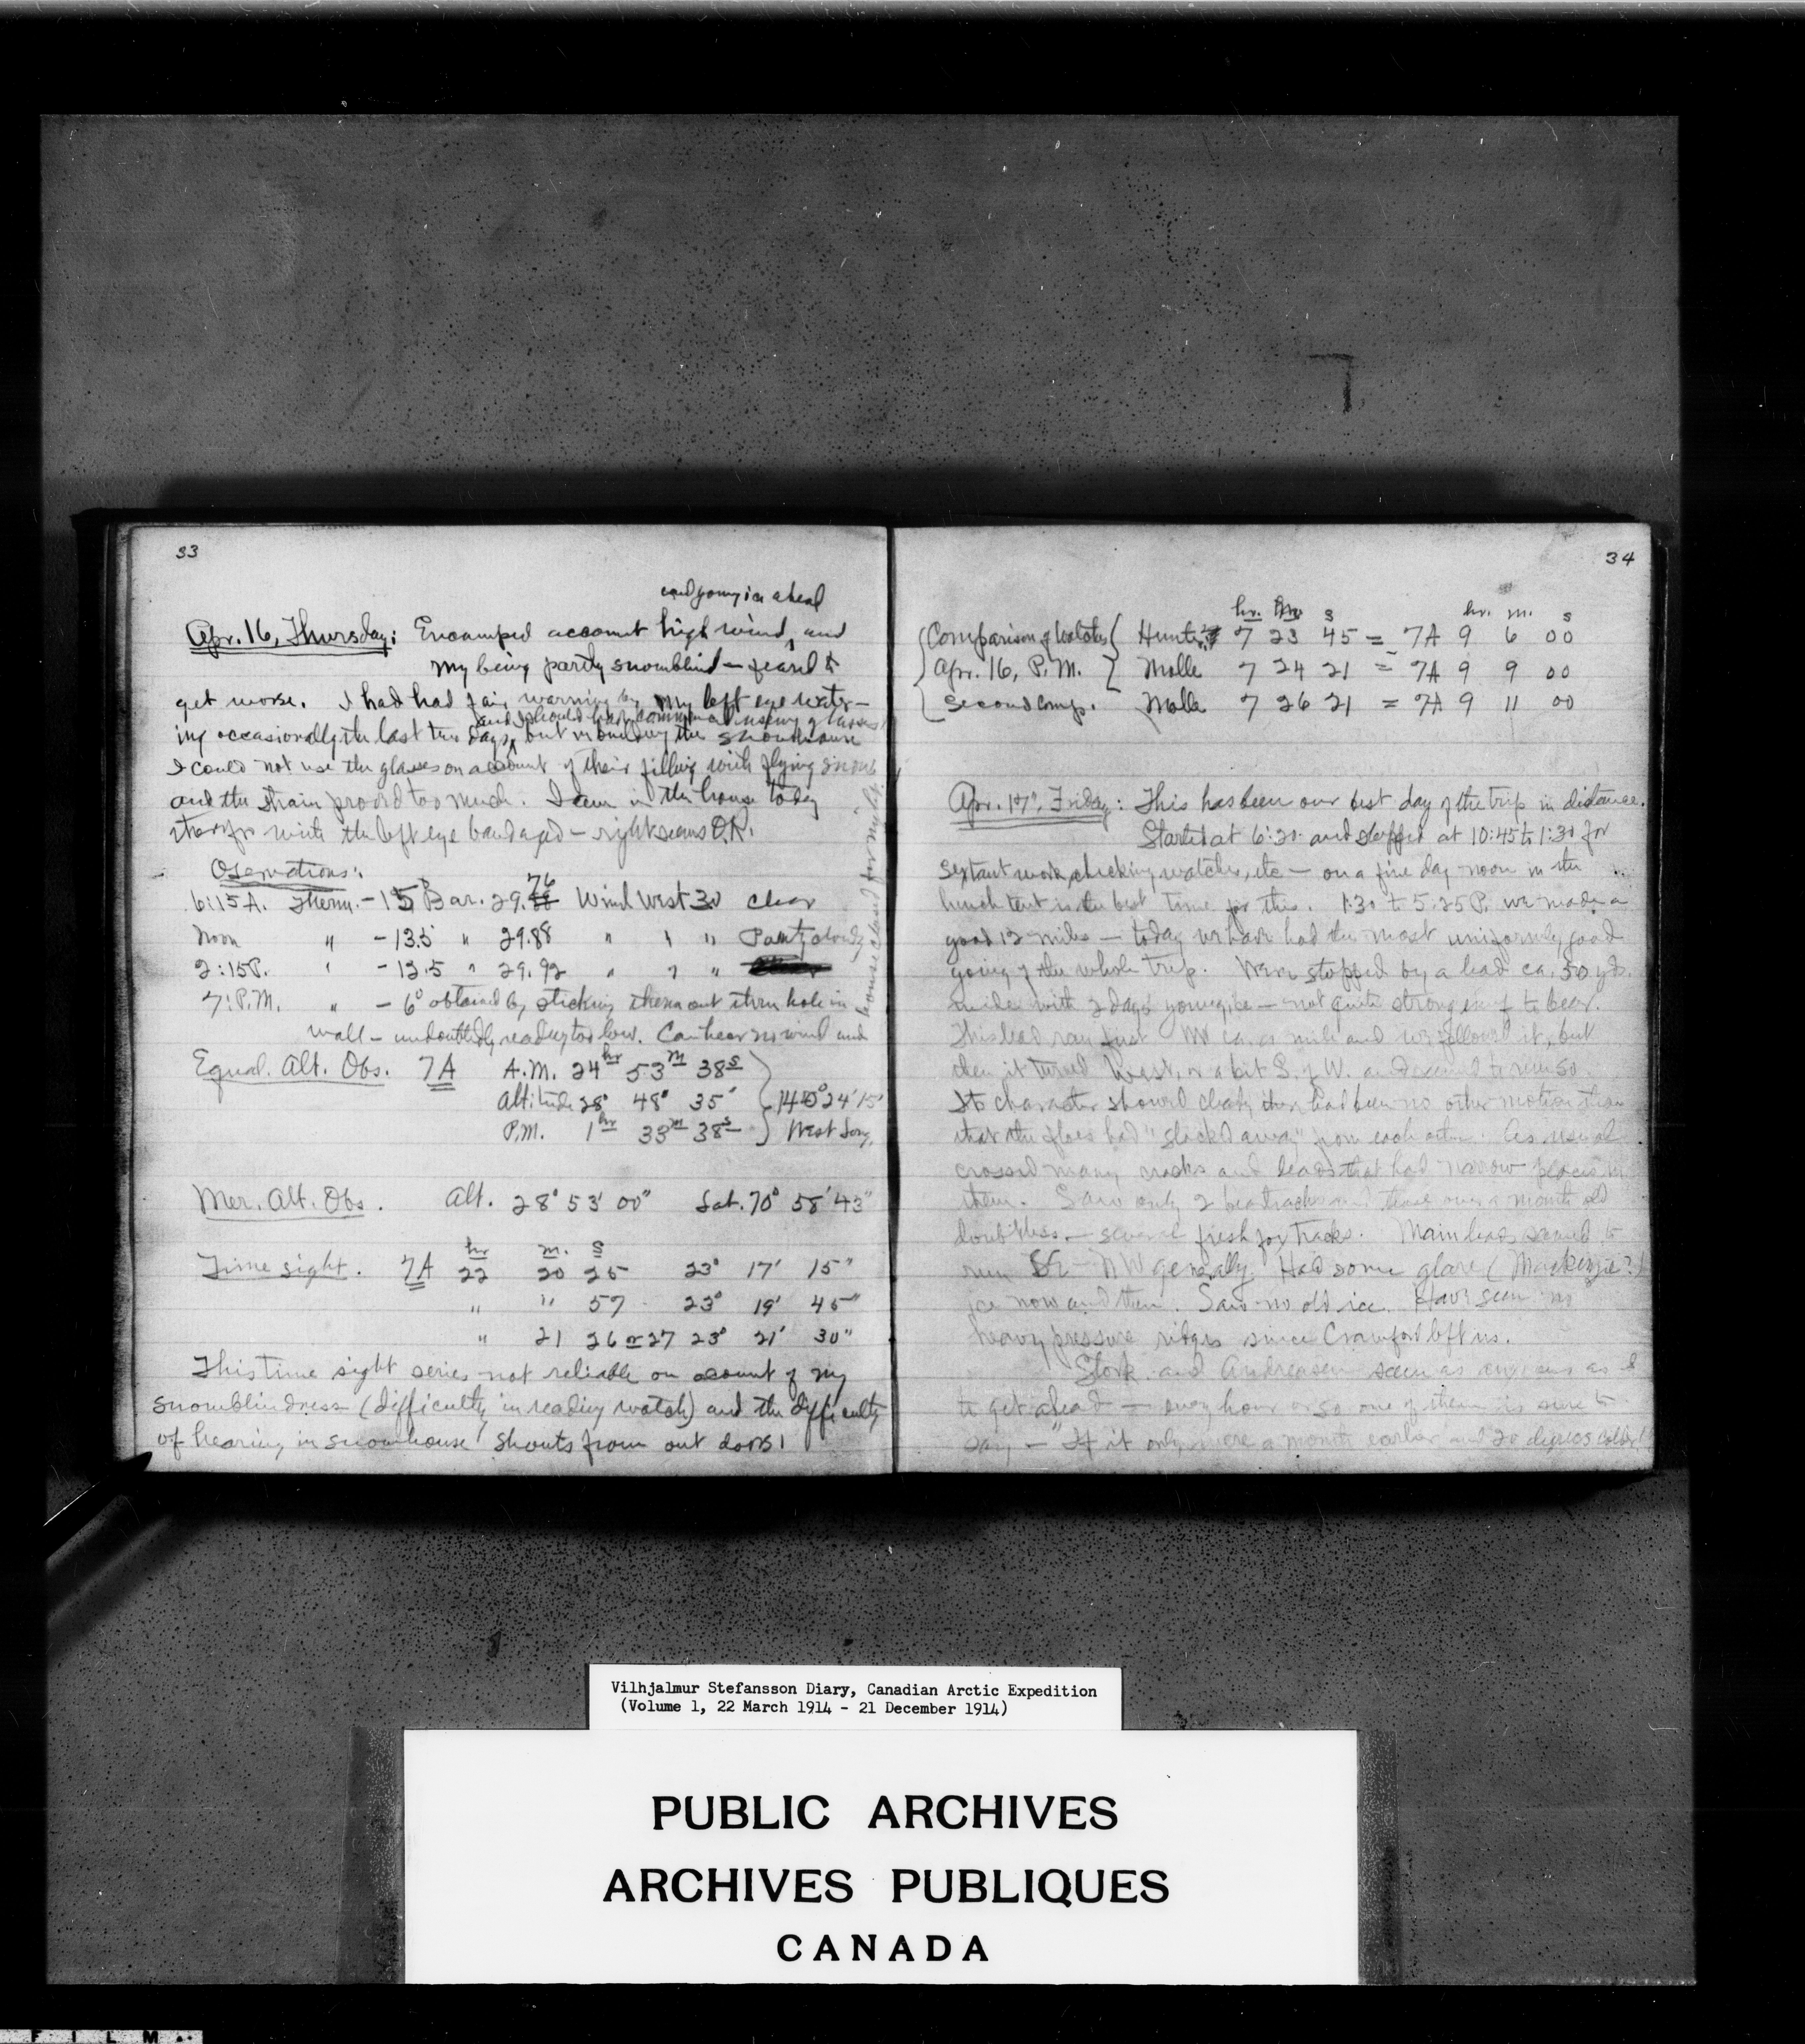 33
and young ice ahead
Apr. 16, Thursday: Encamped account high wind, and
my being partly snowblind — feared to
get worse. I had had fair warning by my left eye water-
and should have commenced using glasses
ing occasionally the last two days, but in building the snowhouse
I could not use the glasses on account of their filling with flying snow
and the strain proved too much. I am in the house today
therefor with the left eye bandaged — right seems O.K.
Observations:
76
6:15 A. Therm. -15 Bar. 29. Wind West 30 Clear
Noon " -13.5 " 29.88 " " " Partly cloudy
2:15 P. " -12.5 " 29.92 " " "
7: P.M. " - 6° obtained by sticking therm out thru hole in
wall — undoubtedly reading too low. Can hear no wind and
house closed for night.
Equal. Alt. Obs. 7A A.M. 24hr 53m 38s
Altitude 28° 48' 35" 140° 24' 15"
P.M. 1hr 33m 38s West Long.
Mer. Alt. Obs. Alt. 28° 53' 00" Lat. 70° 58' 43"
hr m. s
Time sight. 7A 22 20 25 23° 17' 15"
" " 57 23° 19' 45"
" 21 26 or 27 23° 21' 30"
This time sight series not reliable on acount of my
snowblindness (difficulty in reading watch) and the difficulty
of hearing in snowhouse shouts from out doors!
34
hr. m s hr. m. s
Comparison of Watches Hunter 7 23 45 = 7A 9 6 00
Apr. 16, P.M. Molle 7 24 21 = 7A 9 9 00
Second comp. Molle 7 26 21 = 7A 9 11 00
Apr. 17", Friday: This has been our best day of the trip in distance.
Started at 6:20 and stopped at 10:45 to 1:30 for
sextant work, checking watches, etc — on a fine day noon in the
lunch tent is the best time for this. 1:30 to 5:25 P. we made a
good 12 miles — today we have had the most uniformly good
going of the whole trip. Were stopped by a lead ca. 50 yds.
wide with 2 days young ice — not quite strong enuf to bear.
This lead ran first NW ca. a mile and we followed it, but
then it turned West, or a bit S. of W. and seemed to run so.
Its character showed clearly there had been no other motion than
that the floes had "slacked away" from each other. As usual
crossed many cracks and leads that had narrow places in
them. Saw only 2 bear tracks and these over a month old
doubtless — several fresh fox tracks. Main leads seemed to
run SE - NW generally. Had some glare (Mackenzie?)
ice now and then. Saw no old ice. Have seen no
heavy pressure ridges since Crawford left us.
Stork. and Andreasen seem as anxious as I
to get ahead — every hour or so one of them is sure to
say — "If it only were a month earlier and 20 degrees colder!"
Vilhjalmur Stefansson Diary, Canadian Arctic Expedition
(Volume 1, 22 March 1914 - 21 December 1914)
PUBLIC ARCHIVES
ARCHIVES PUBLIQUES
CANADA
FILM